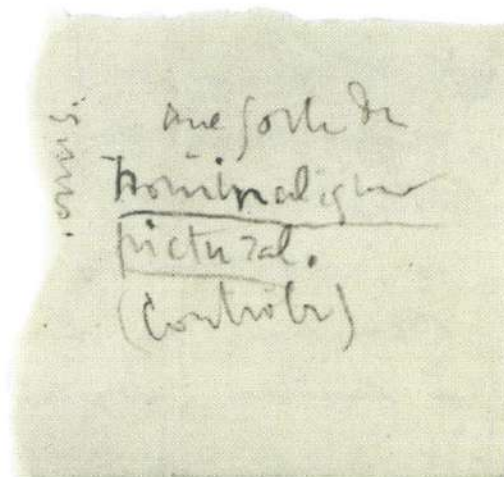 une sorte de
nominalisme
pictural.
(Contrôler)